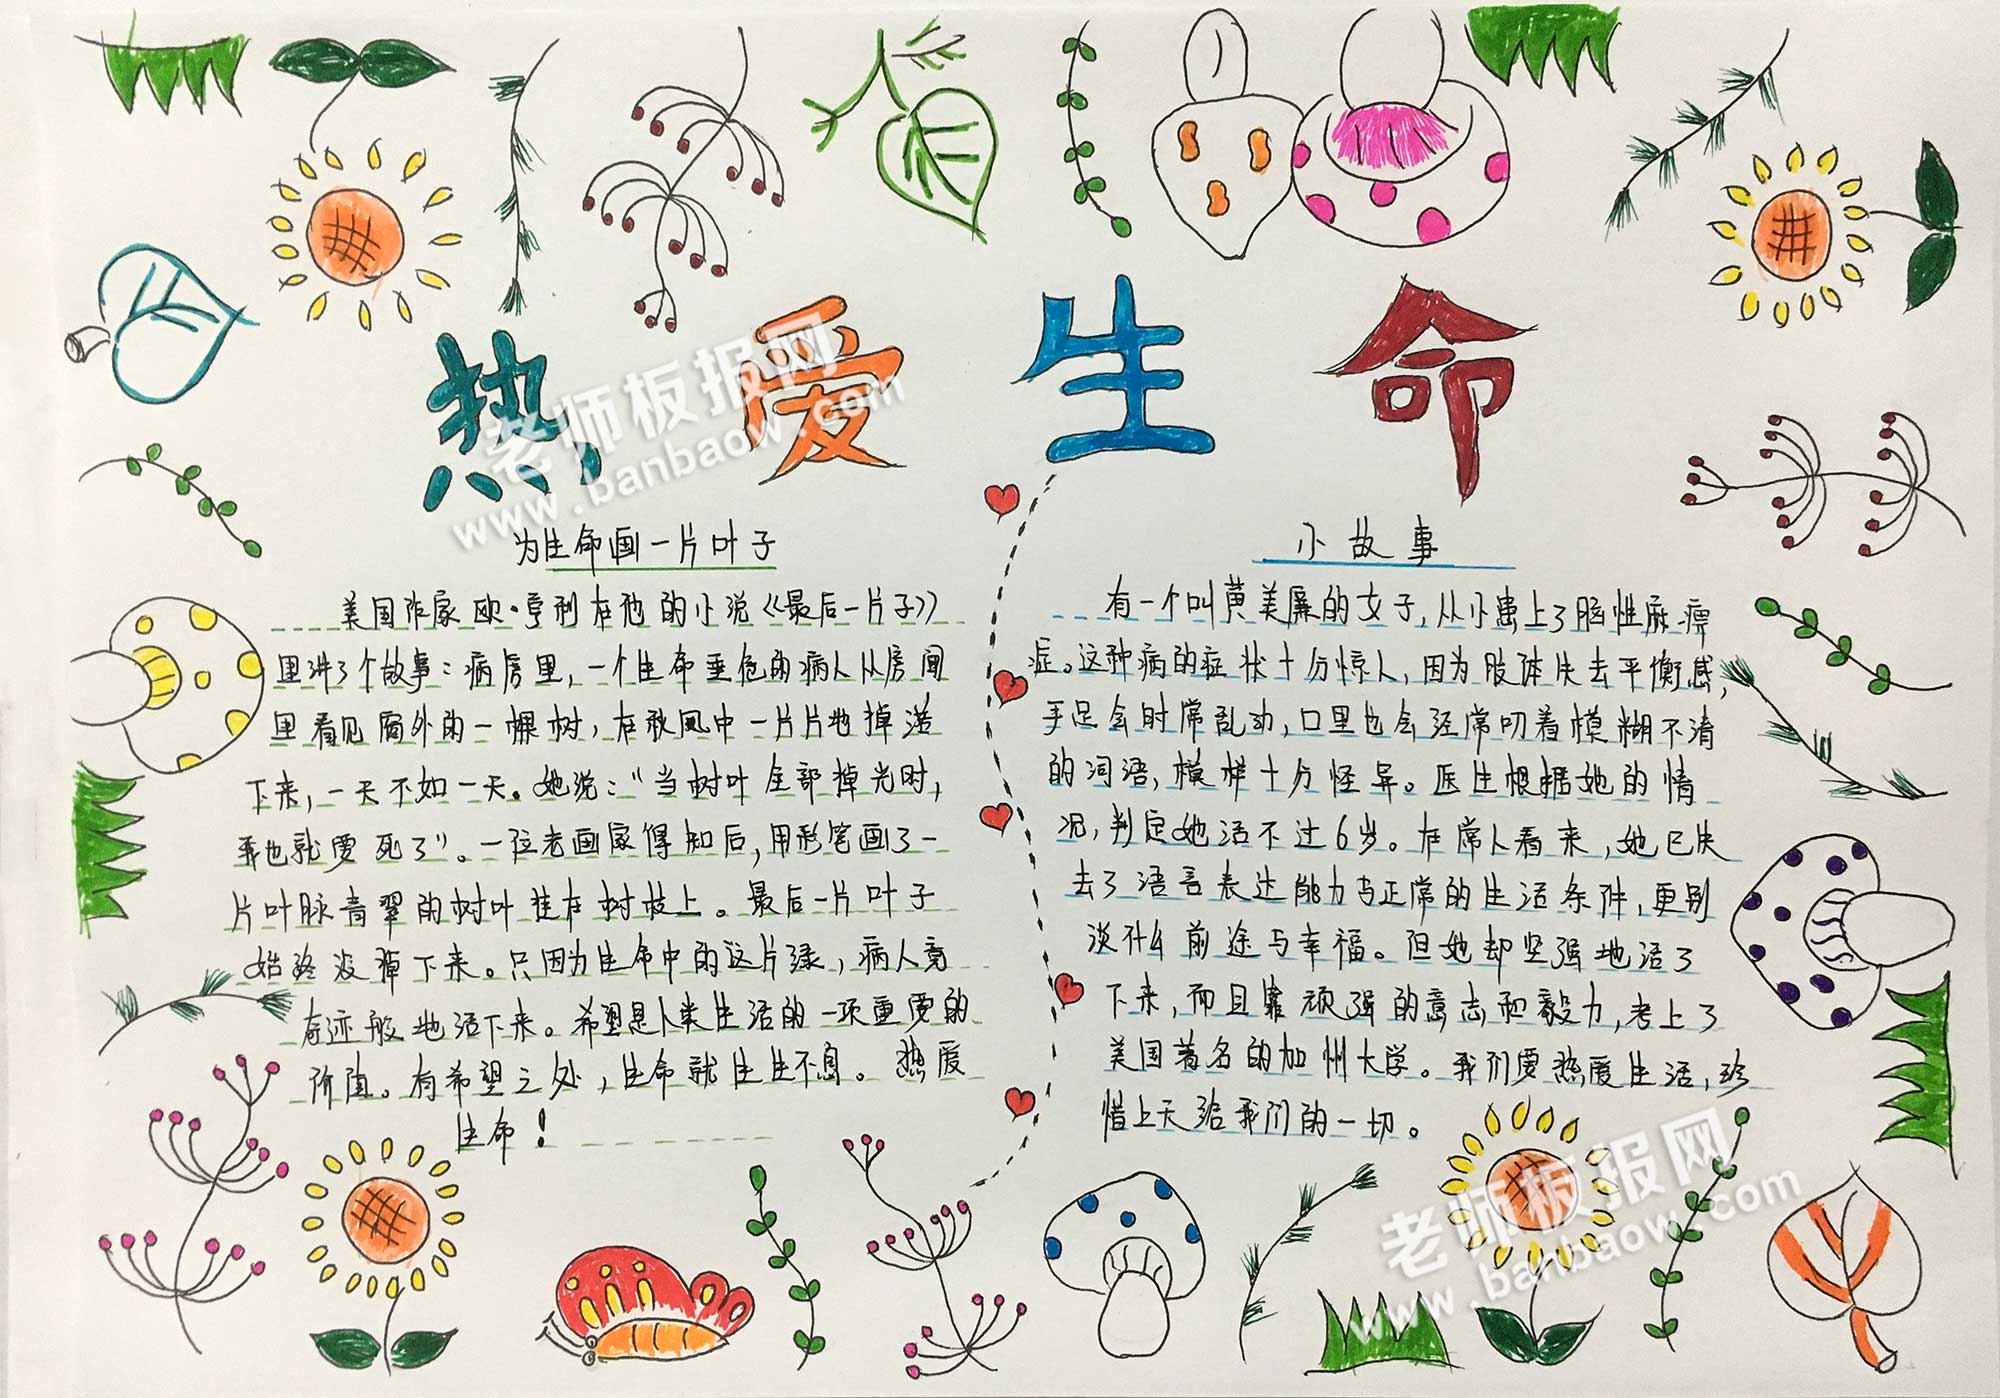 热爱生命
为生命画一片叶子
美国作家欧·亨利在他的小说《最后一片子》
里讲了个故事：病房里，一个生命垂危的病人从房间
里看见窗外的一棵树，在秋风中一片片地掉落
下来，一天不如一天。她说：“当树叶全部掉光时，
我也就要死了”。一位老画家得知后，用彩笔画了一
片叶脉青翠的树叶挂在树枝上。最后一片叶子
始终没掉下来。只因为生命中的这片绿，病人竟
奇迹般地活下来。希望是人类生活的一项重要的
价值。有希望之处，生命就生生不息。热爱
生命！
小故事
有一个叫黄美廉的女子，从小患上了脑性麻痹
症。这种病的症状十分惊人，因为肢体失去平衡感，
手足会时常乱动，口里也会经常叨着模糊不清
的词语，模样十分怪异。医生根据她的情
况，判定她活不过6岁。在常人看来，她已失
去了语言表达能力与正常的生活条件，更别
谈什么前途与幸福。但她却坚强地活了
下来，而且靠顽强的意志和毅力，考上了
美国著名的加州大学。我们要热爱生活，珍
惜上天给我们的一切。
老师板报网
www.banbaow.com
老师板报网
www.banbaow.com